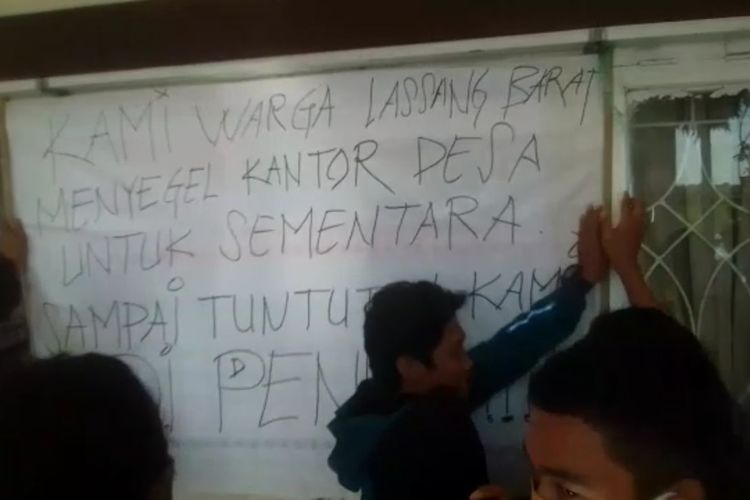 KAMI WARGA LASSANG BARAT
MENYEGEL KANTOR DESA
UNTUK SEMENTARA.
SAMPAI
DI